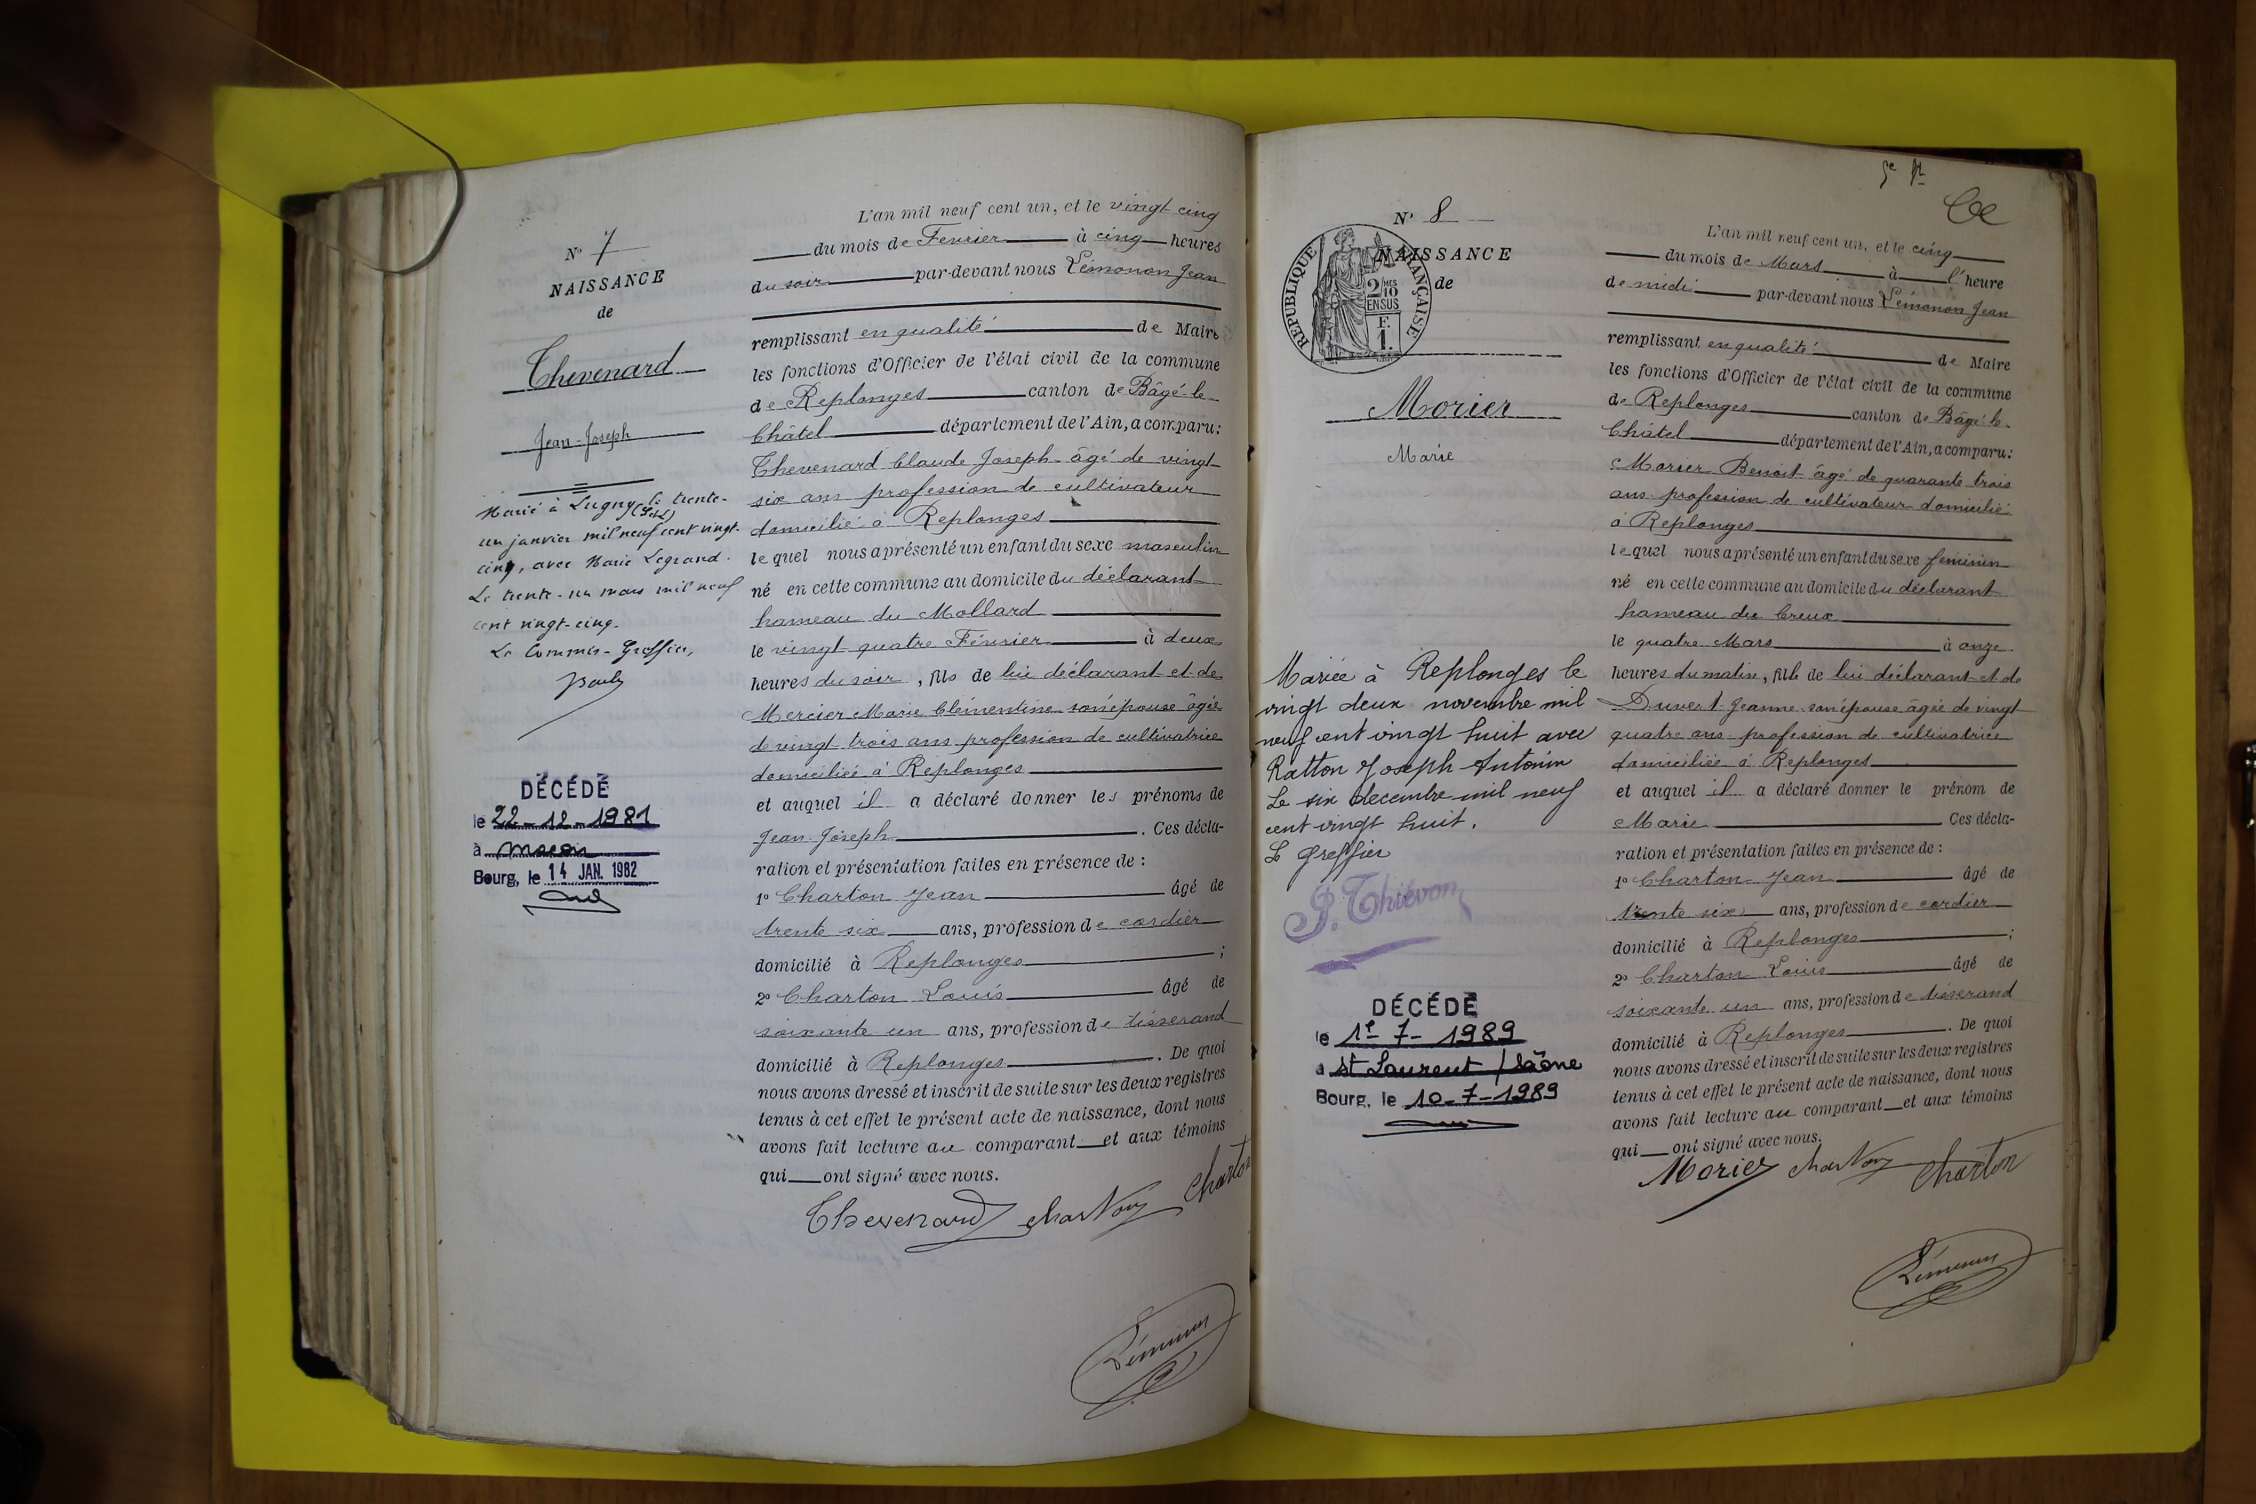 N° 7
NAISSANCE
de
Thevenard
Jean-Joseph
Marié à Lugny (S&L) le trente-
un janvier mil neuf cent vingt-
cinq, avec Marie Legrand.
Le trente-un mars mil neuf
cent vingt-cinq.
Le Commis-Greffier,
DÉCÉDÉ
le 22-12-1981
à Macon
Bourg, le 14 JAN. 1982
L'an mil neuf cent un, et le vingt cinq
du mois de Février à cinq heures
du soir par-devant nous Lémonon Jean
remplissant en qualité de Maire
les fonctions d'Officier de l'état civil de la commune
de Replonges canton de Bâgé-le-
Châtel département de l'Ain, a comparu:
Thevenard Claude Joseph âgé de vingt
six ans profession de cultivateur
domicilié à Replonges
le quel nous a présenté un enfant du sexe masculin
né en cette commune au domicile du déclarant
hameau du Mollard
le vingt quatre Février à deux
heures du soir, fils de lui déclarant et de
Mercier Marie Clémentine son épouse âgée
de vingt trois ans profession de cultivatrice
domiciliée à Replonges
et auquel il a déclaré donner les prénoms de
Jean Joseph. Ces décla-
ration et présentation faites en présence de :
1° Charton Jean âgé de
trente six ans, profession de cordier
domicilié à Replonges ;
2° Charton Louis âgé de
soixante un ans, profession de tisserand
domicilié à Replonges. De quoi
nous avons dressé et inscrit de suite sur les deux registres
tenus à cet effet le présent acte de naissance, dont nous
avons fait lecture au comparant et aux témoins
qui ont signé avec nous.
Thevenard Charton Charton
Lémonon
N° 8
NAISSANCE
de
REPUBLIQUE FRANÇAISE
2/10 MES
EN SUS
F.
1.
Morier
Marie
Mariée à Replonges le
vingt deux novembre mil
neuf cent vingt huit avec
Ratton Joseph Antonin
Le six décembre mil neuf
cent vingt huit.
Le Greffier
P. Thiévon
DÉCÉDÉ
le 1er-7-1989
à St Laurent / Saône
Bourg, le 10-7-1989
L'an mil neuf cent un, et le cinq
du mois de Mars à l'heure
de midi par-devant nous Lémonon Jean
remplissant en qualité de Maire
les fonctions d'Officier de l'état civil de la commune
de Replonges canton de Bâgé-le-
Châtel département de l'Ain, a comparu:
Morier Benoit âgé de quarante trois
ans profession de cultivateur domicilié
à Replonges
le quel nous a présenté un enfant du sexe féminin
né en cette commune au domicile du déclarant
hameau du Creux
le quatre Mars à onze
heures du matin, fille de lui déclarant et de
Duvert Jeanne son épouse âgée de vingt
quatre ans profession de cultivatrice
domiciliée à Replonges
et auquel il a déclaré donner le prénom de
Marie Ces décla-
ration et présentation faites en présence de :
1° Charton Jean âgé de
trente six ans, profession de cordier
domicilié à Replonges ;
2° Charton Louis âgé de
soixante un ans, profession de tisserand
domicilié à Replonges. De quoi
nous avons dressé et inscrit de suite sur les deux registres
tenus à cet effet le présent acte de naissance, dont nous
avons fait lecture au comparant et aux témoins
qui ont signé avec nous.
Morier Charton Charton
Lémonon